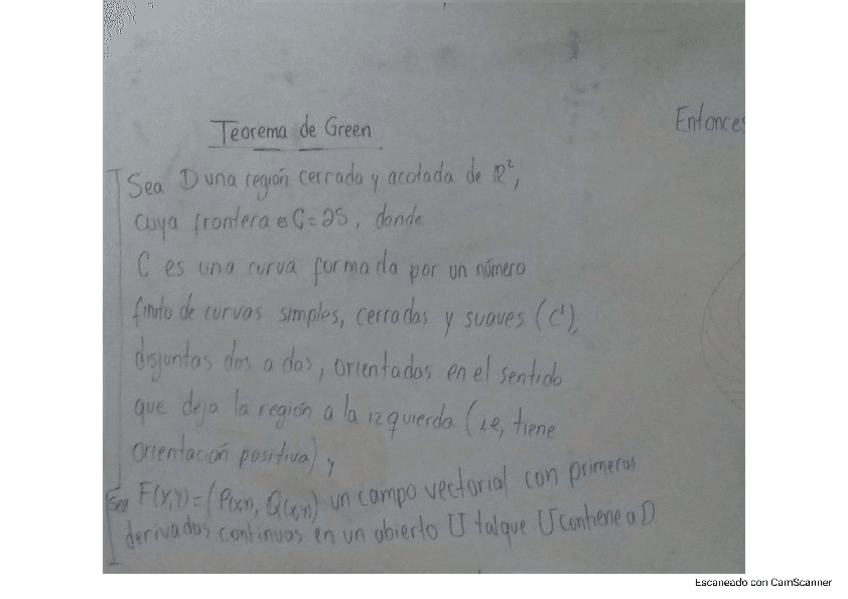 Teorema de Green
Entonces
Sea D una región cerrada y acotada de R²,
cuya frontera es C = ∂S, donde
C es una curva formada por un número
finito de curvas simples, cerradas y suaves (C¹),
disjuntas dos a dos, orientadas en el sentido
que deja la región a la izquierda (ie, tiene
orientación positiva) y
Sea F(x,y) = (P(x,y), Q(x,y)) un campo vectorial con primeras
derivadas continuas en un abierto U tal que U contiene a D
Escaneado con CamScanner